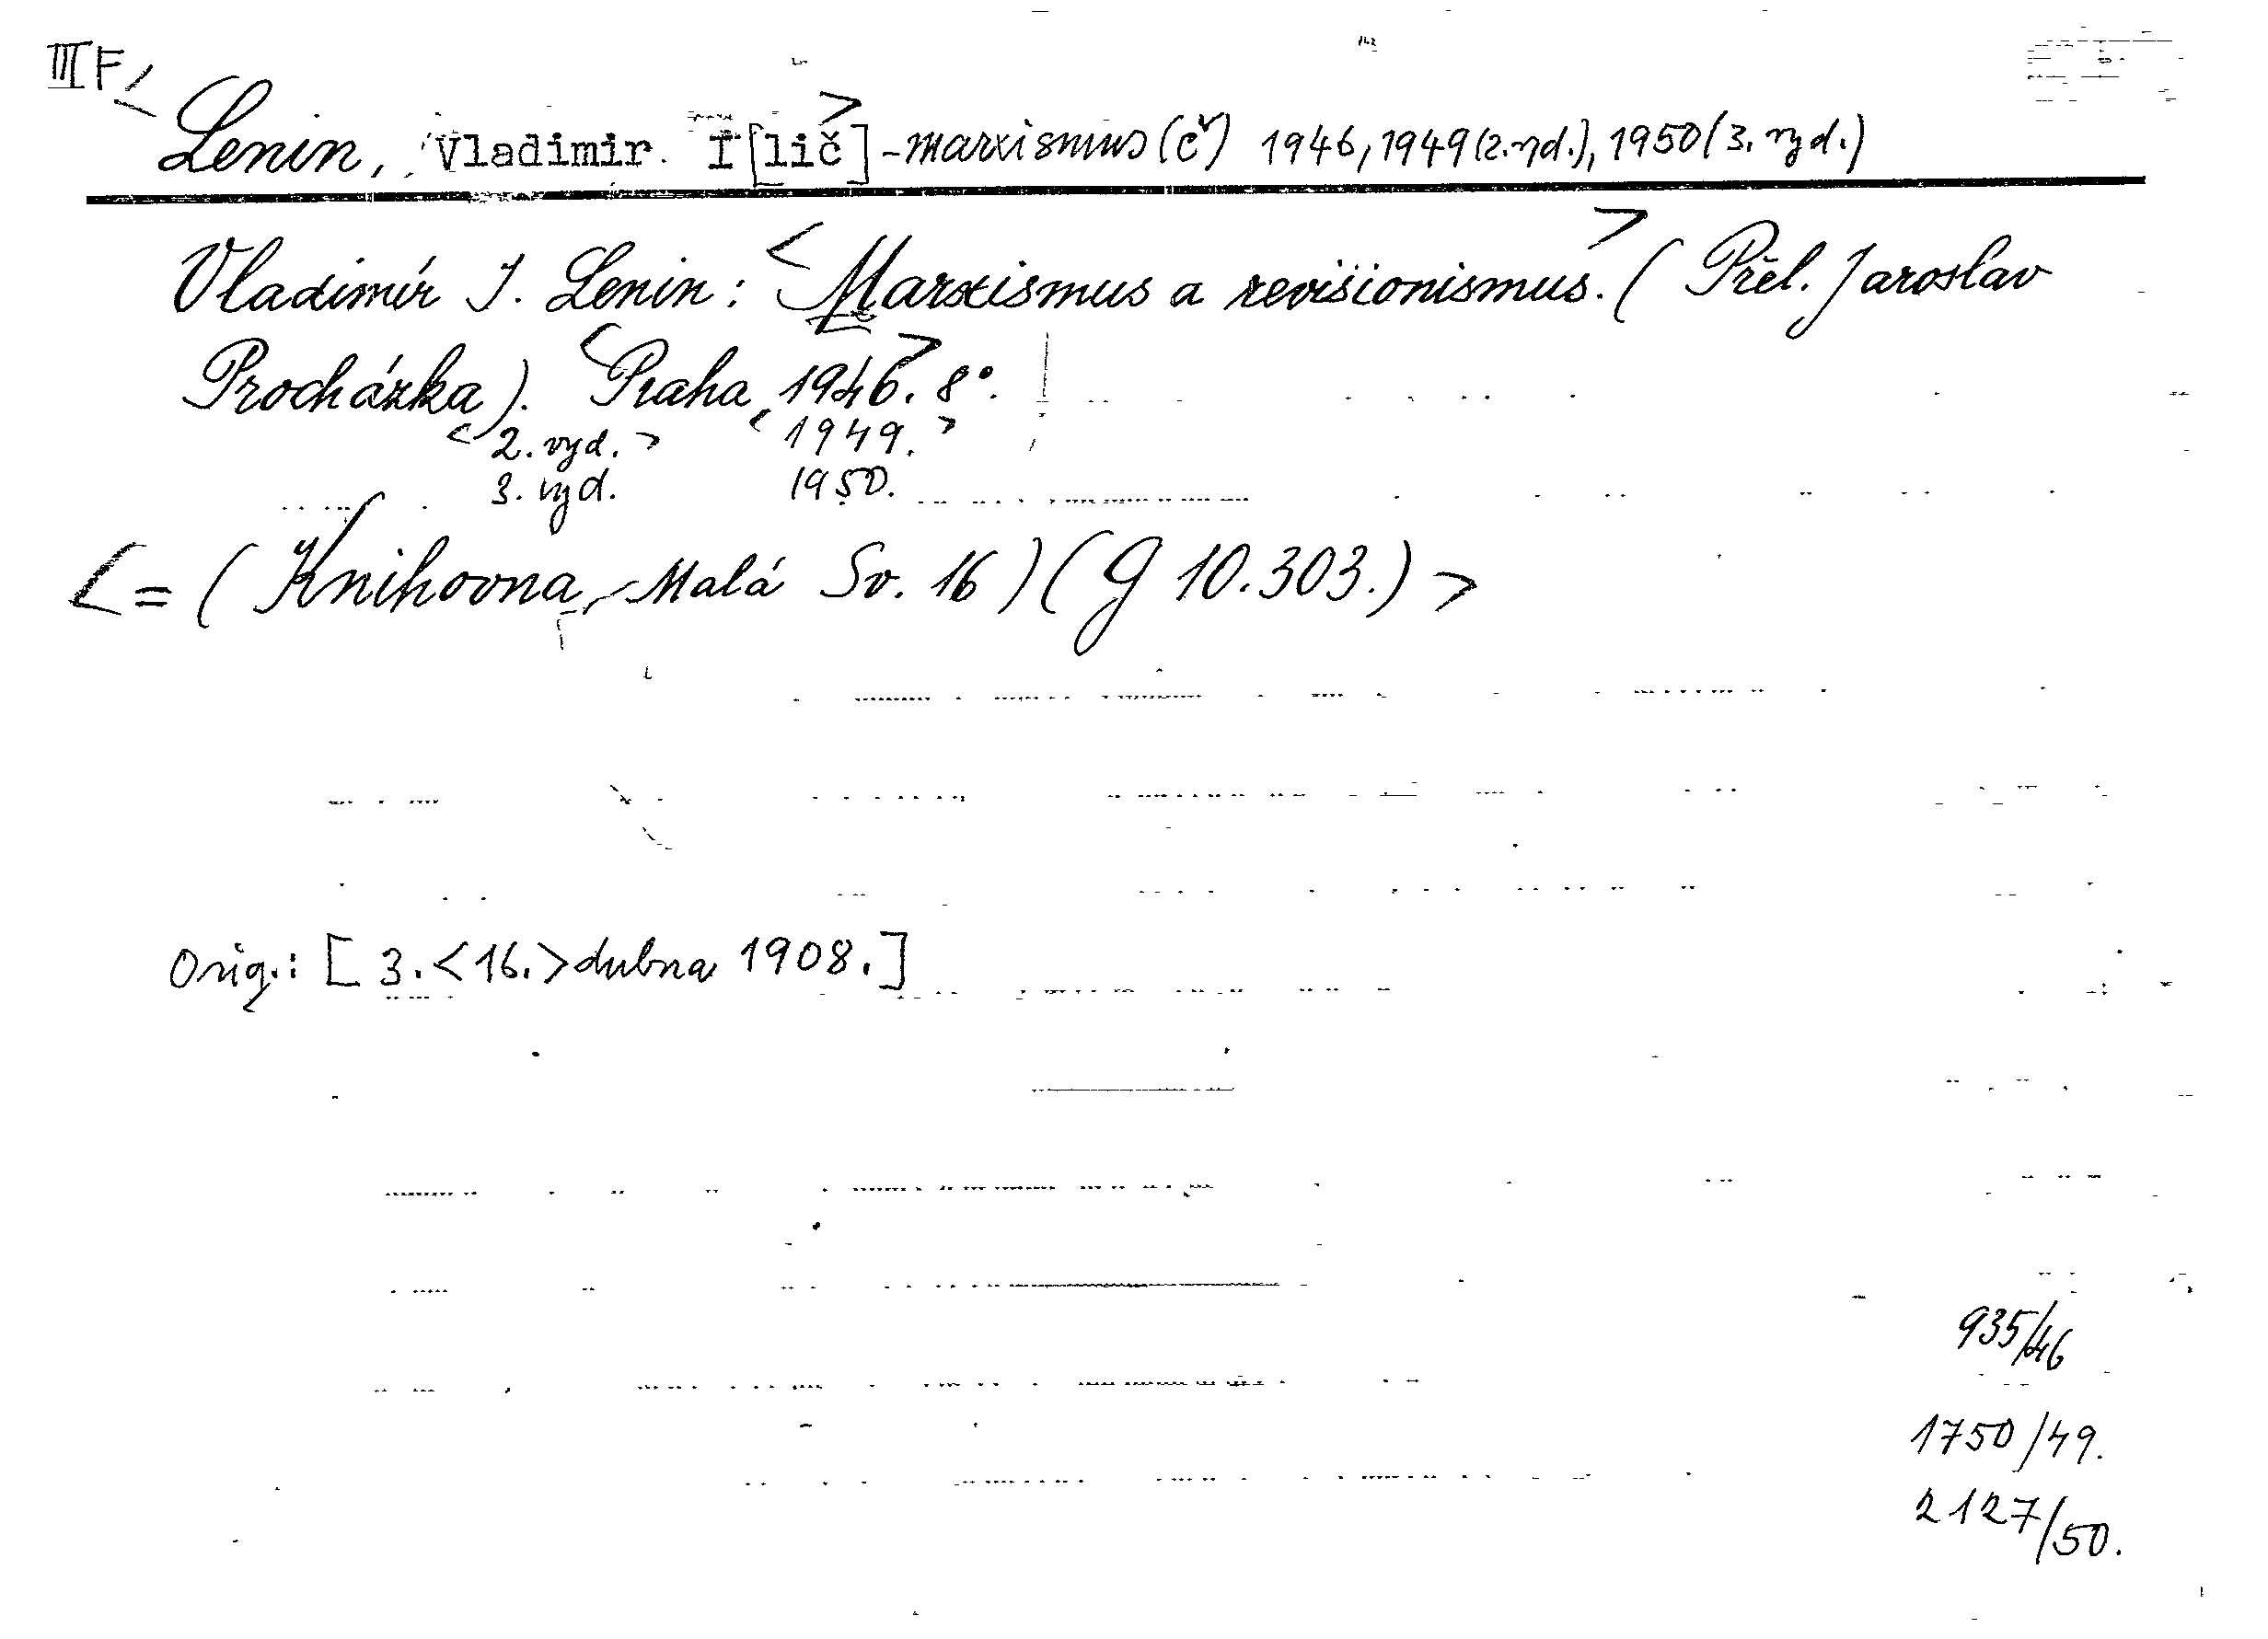 III F
< Lenin, Vladimir I[lič]> - marxismus (č) 1946, 1949 (2. vyd.), 1950 (3. vyd.)
Vladimír I. Lenin: <Marxismus a revisionismus.> (Přel. Jaroslav
Procházka). <Praha 1946.> 8°.
<2. vyd.> <1949.>
3. vyd. 1950.
<= (Knihovna, Malá Sv. 16) (G 10.303.)>
Orig.: [3.<16.>dubna 1908.]
935/46
1750/49.
2127/50.